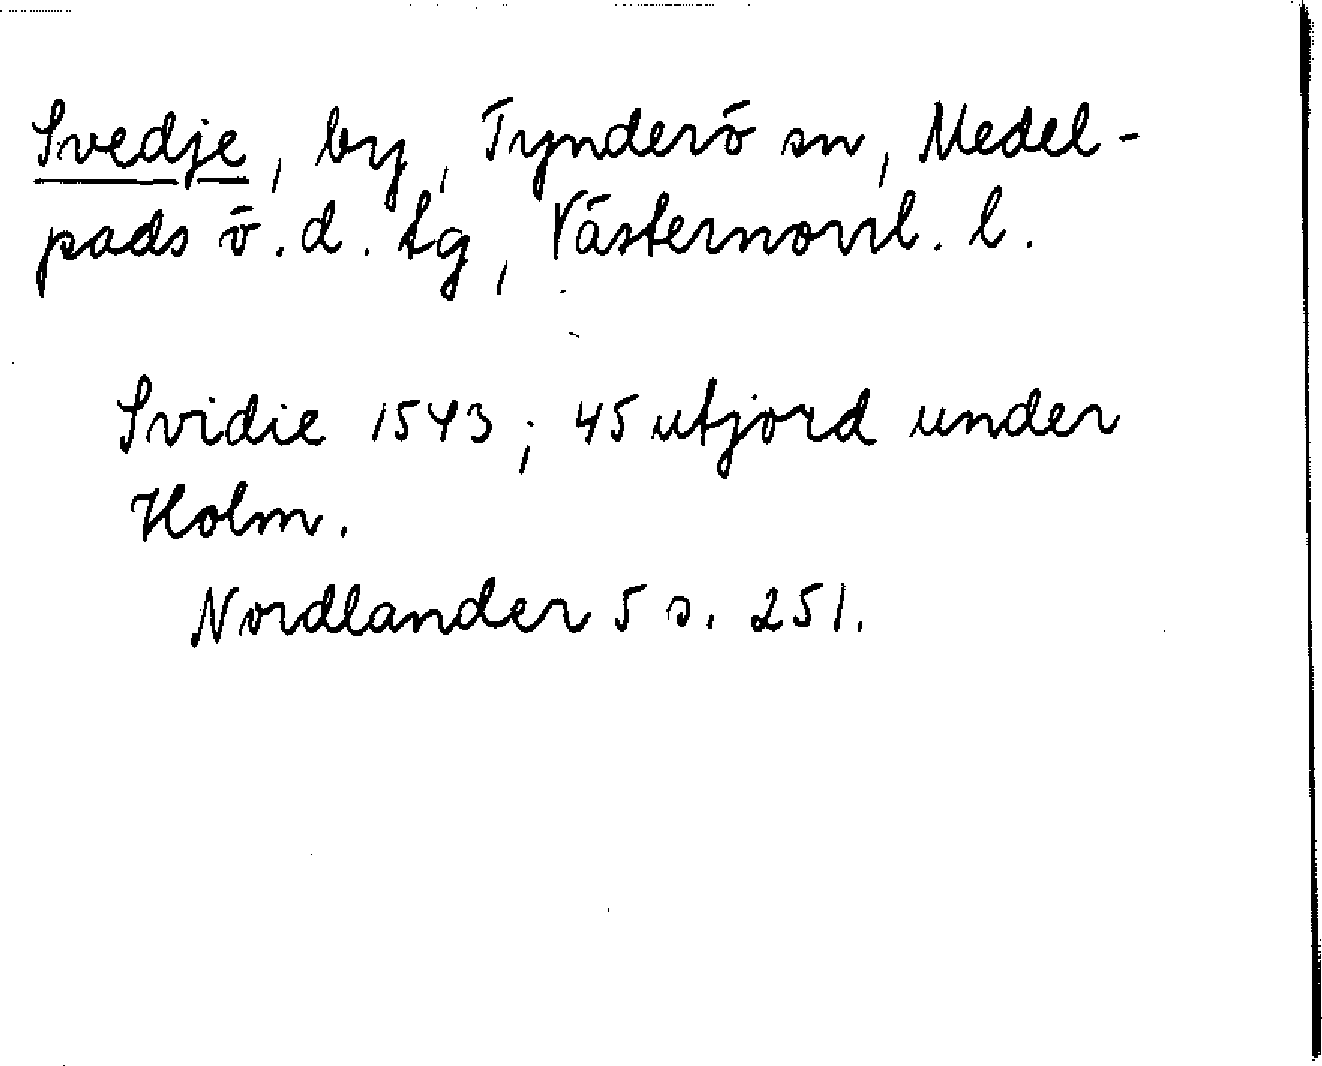 Svedje, by, Tynderö sn, Medel-
pads ö. d. tg, Västernorrl. l.
Svidie 1543; 45 utjord under
Holm.
Nordlander 5 s. 251.